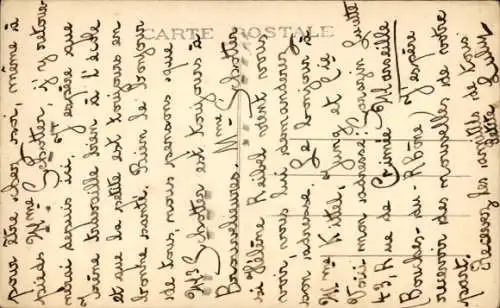 CARTE POSTALE
pour être chez soi, même à
Mme Schotter, j'y retour
nerai depuis ici. J'espère que
frère travaille bien à l'école
et que la petite est toujours en
bonne santé. Bien le bonjour
de tous, nous pensons que
Mr Schotter est toujours à
Bonnesheures. Mme Schotter
si Hélène Reibel vient vous
voir, vous lui demanderez
son adresse. Le bonjour à
Mme Kittel, June et Cie.
Voici mon adresse: Sarazin Lucie
43, Rue de Crimée Marseille
Bouches-du-Rhône) J'espère
recevoir des nouvelles de votre
part.
Recevez les amitiés de tous